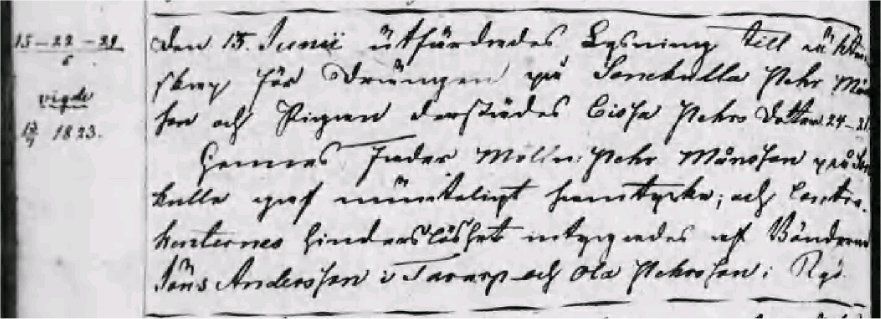 15 – 22 – 29.
6
vigde
13/7 1823.
den 15. Junii utfärdades Lysning till äkten
skap för Drängen på Stenkulla Pehr Mån
son och Pigan derstädes Cissa Pehrs Dotter 24 – 21.
Hennes Fader Pehr Månsson på
kulla gaf munteligt samtycke; och Contra-
henternes hinderslöshet intygades af Bönderne
Jöns Andersson i Tararp och Ola Pehrsson i